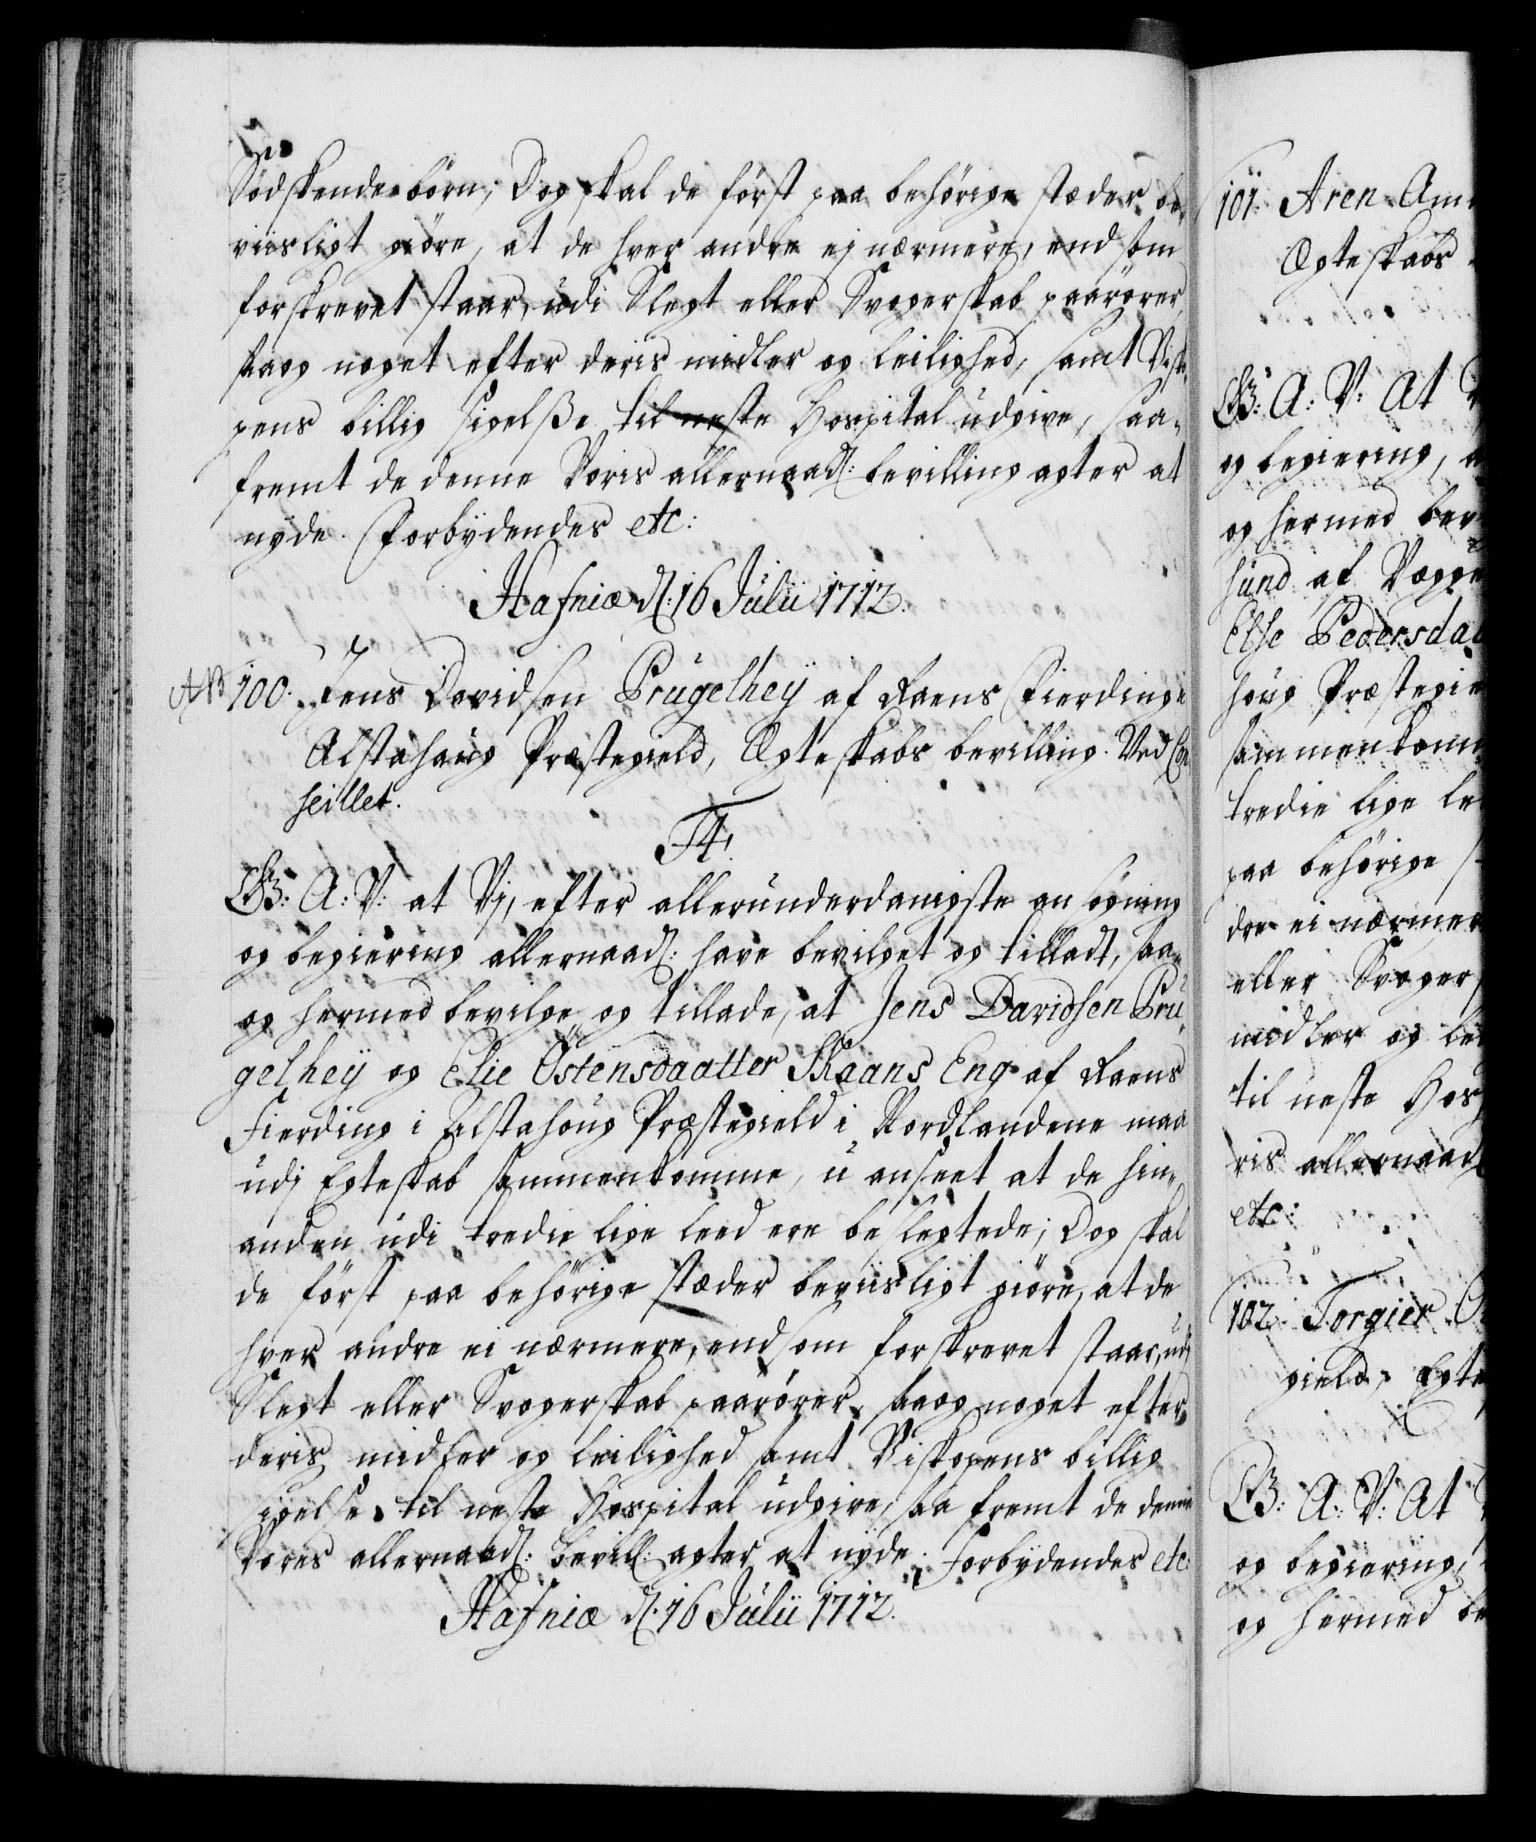 Södskendebörn; Dog skal de först paa behörige stæder be„
viisligt giöre, at de hver andre ej nærmere, end som
forskrevet staar, udi Slegt eller Svogerskab paarörer,
saa og noget efter deris midler og leilighed, samt Bisko„
pens billig sigelße til neste Hospital udgive, saa„
fremt de denne Voris allernaad: bevilling agter at
nyde. Forbydendes etc:
Hafniæ d: 16 Julii 1712.
NB 100. Jens Davidsen Prugelheÿ af Raens Fierding
Alstahaug Præstegield, Egteskabs bevilling. Ved Con
seillet.
F4.
G: A: V: at Vj, efter allerunderdanigste ansögning
og begiering allernaad: have bevilget og tilladt, saa„
og hermed bevilge og tillade, at Jens Davidsen Pru„
gelheÿ og Elie Östensdaatter Skaans Eng af Raens
Fierding i Alstahoug Præstegield i Nordlandene maa
udj Egteskab sammenkomme, uanseet at de hin„
anden udi tredie lige leed ere beslegtede; Dog skal
de först paa behörige stæder beviisligt giöre, at de
hver andre ei nærmere, end som forskrevet staar, udj
Slegt eller Svogerskab paarörer, saa og noget efter
deris midler og leilighed samt Biskopens billig
sigelse til neste Hospital udgive, saa fremt de denne
Vores allernaad: bevill: agter at nyde. Forbydendes etc:
Hafniæ d: 16 Julii 1712.
101. Aren Am
Egteskabs
G: A: V: At
og begiering,
og hermed bev
hund af Vægge
Else Pedersda
houg Præstegie
sammenkom
tredie lige le
paa behörige
dre ei nærmer
eller Svoger
midler og lei
til neste Hos
ris allernaad
etc:
102. Torgier
gield, Egte
G: A: V: At
og begiering,
og hermed be